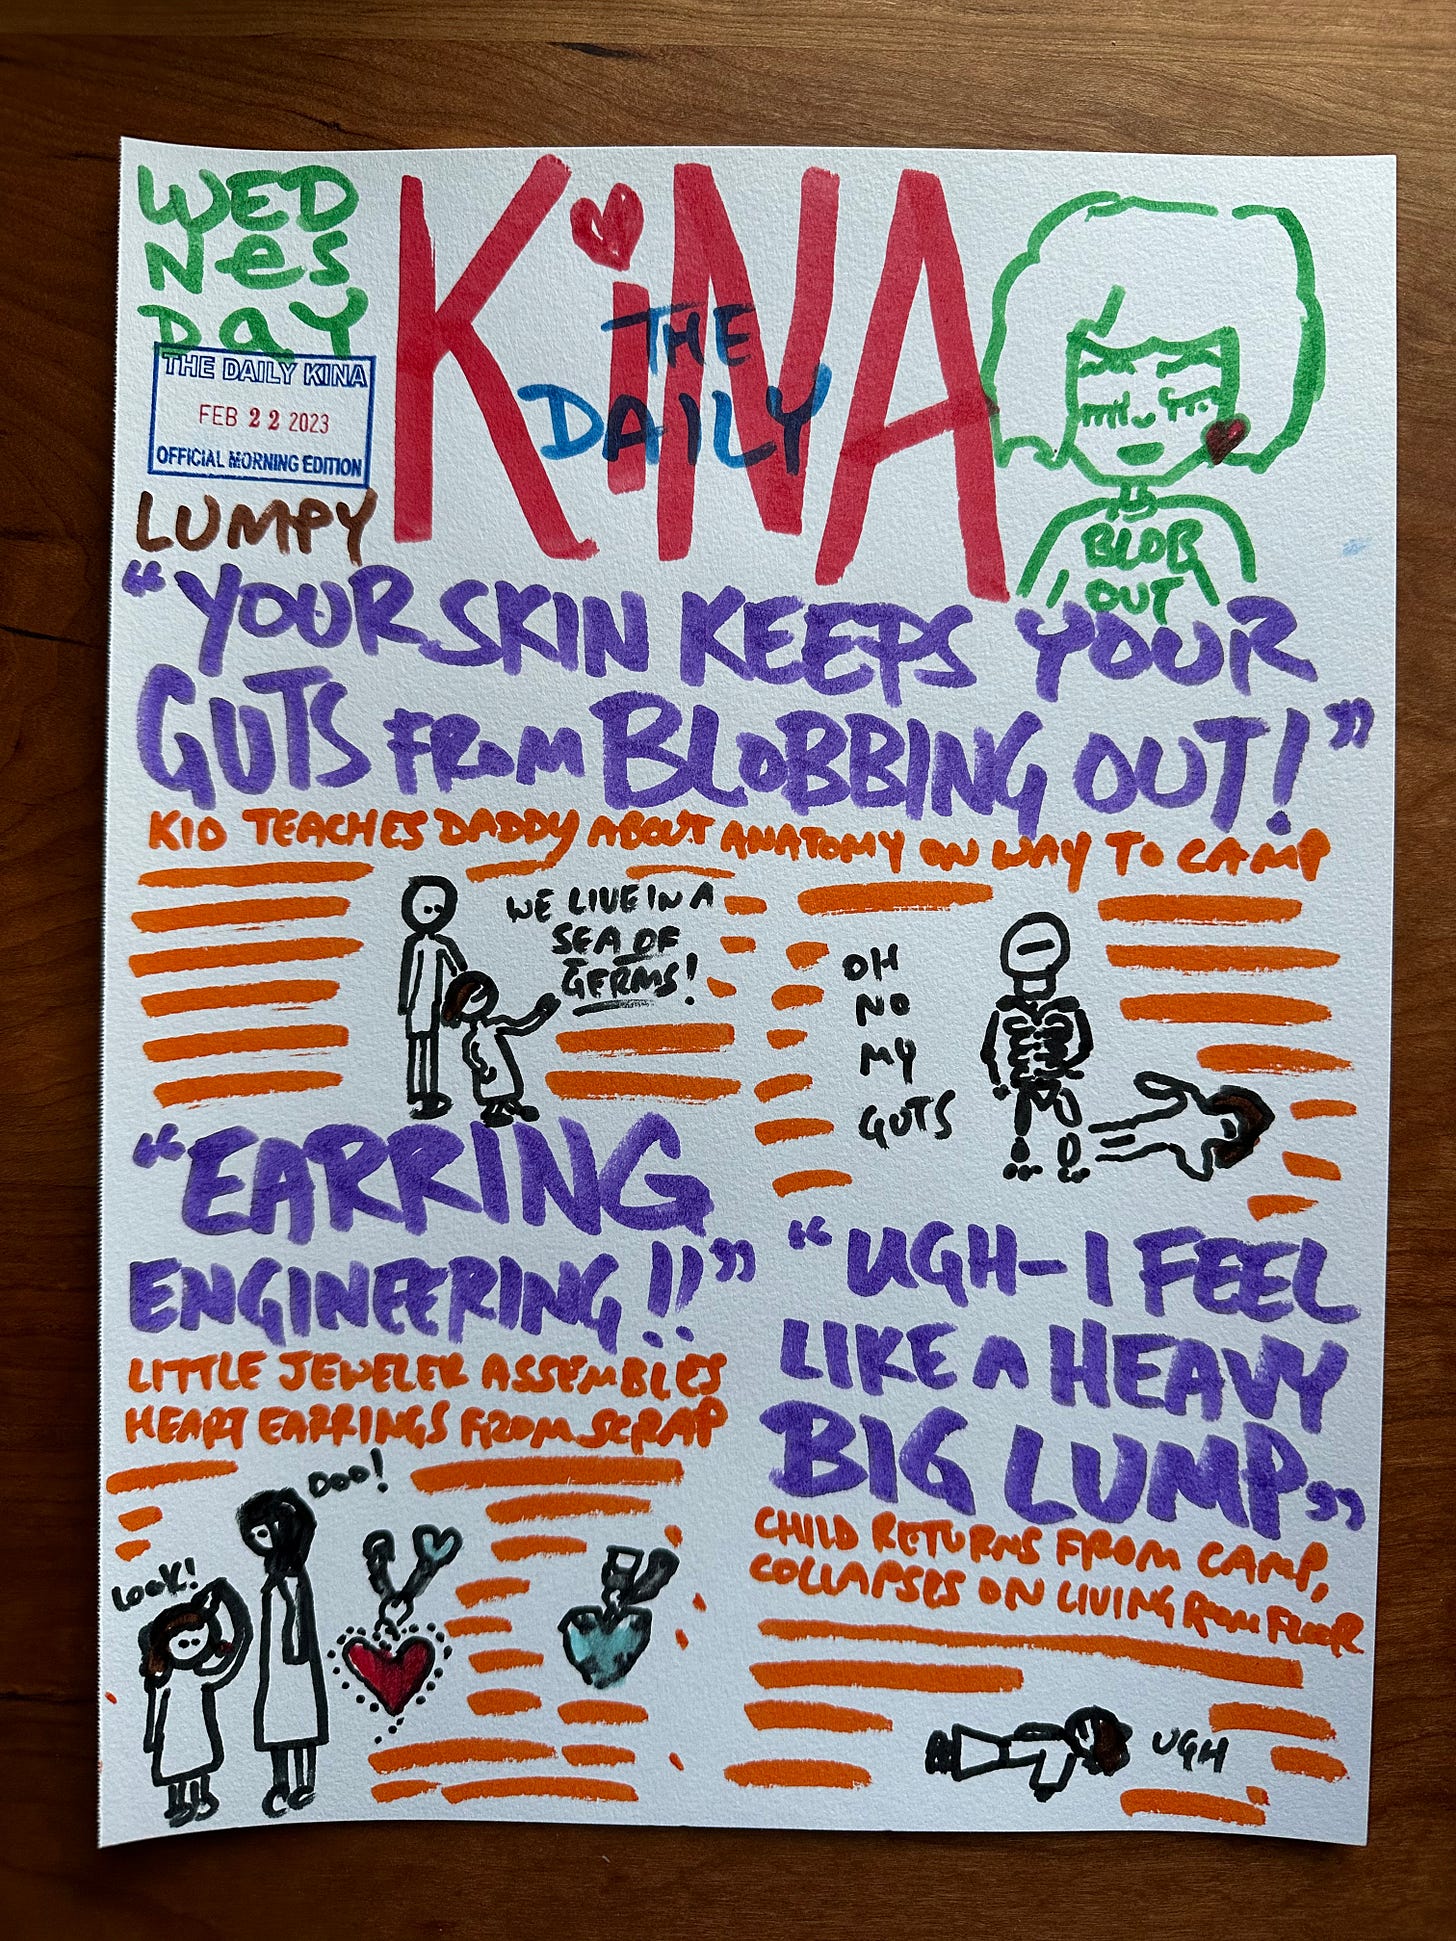 WED
NeS
DaY
KiNA
THE
DAILY
THE DAILY KINA
FEB 22 2023
OFFICIAL MORNING EDITION
LUMPY
BLOB
OUT
“YOUR SKIN KEEPS YOUR
GUTS FROM BLOBBING OUT!”
KID TEACHES DADDY ABOUT ANATOMY ON WAY TO CAMP
WE LIVE IN A
SEA OF
GERMS!
OH
NO
MY
GUTS
“EARRING
ENGINEERING!!”
LITTLE JEWELER ASSEMBLES
HEART EARRINGS FROM SCRAP
LOOK!
OOO!
“UGH-I FEEL
LIKE A HEAVY
BIG LUMP”
CHILD RETURNS FROM CAMP,
COLLAPSES ON LIVING ROOM FLOOR
UGH